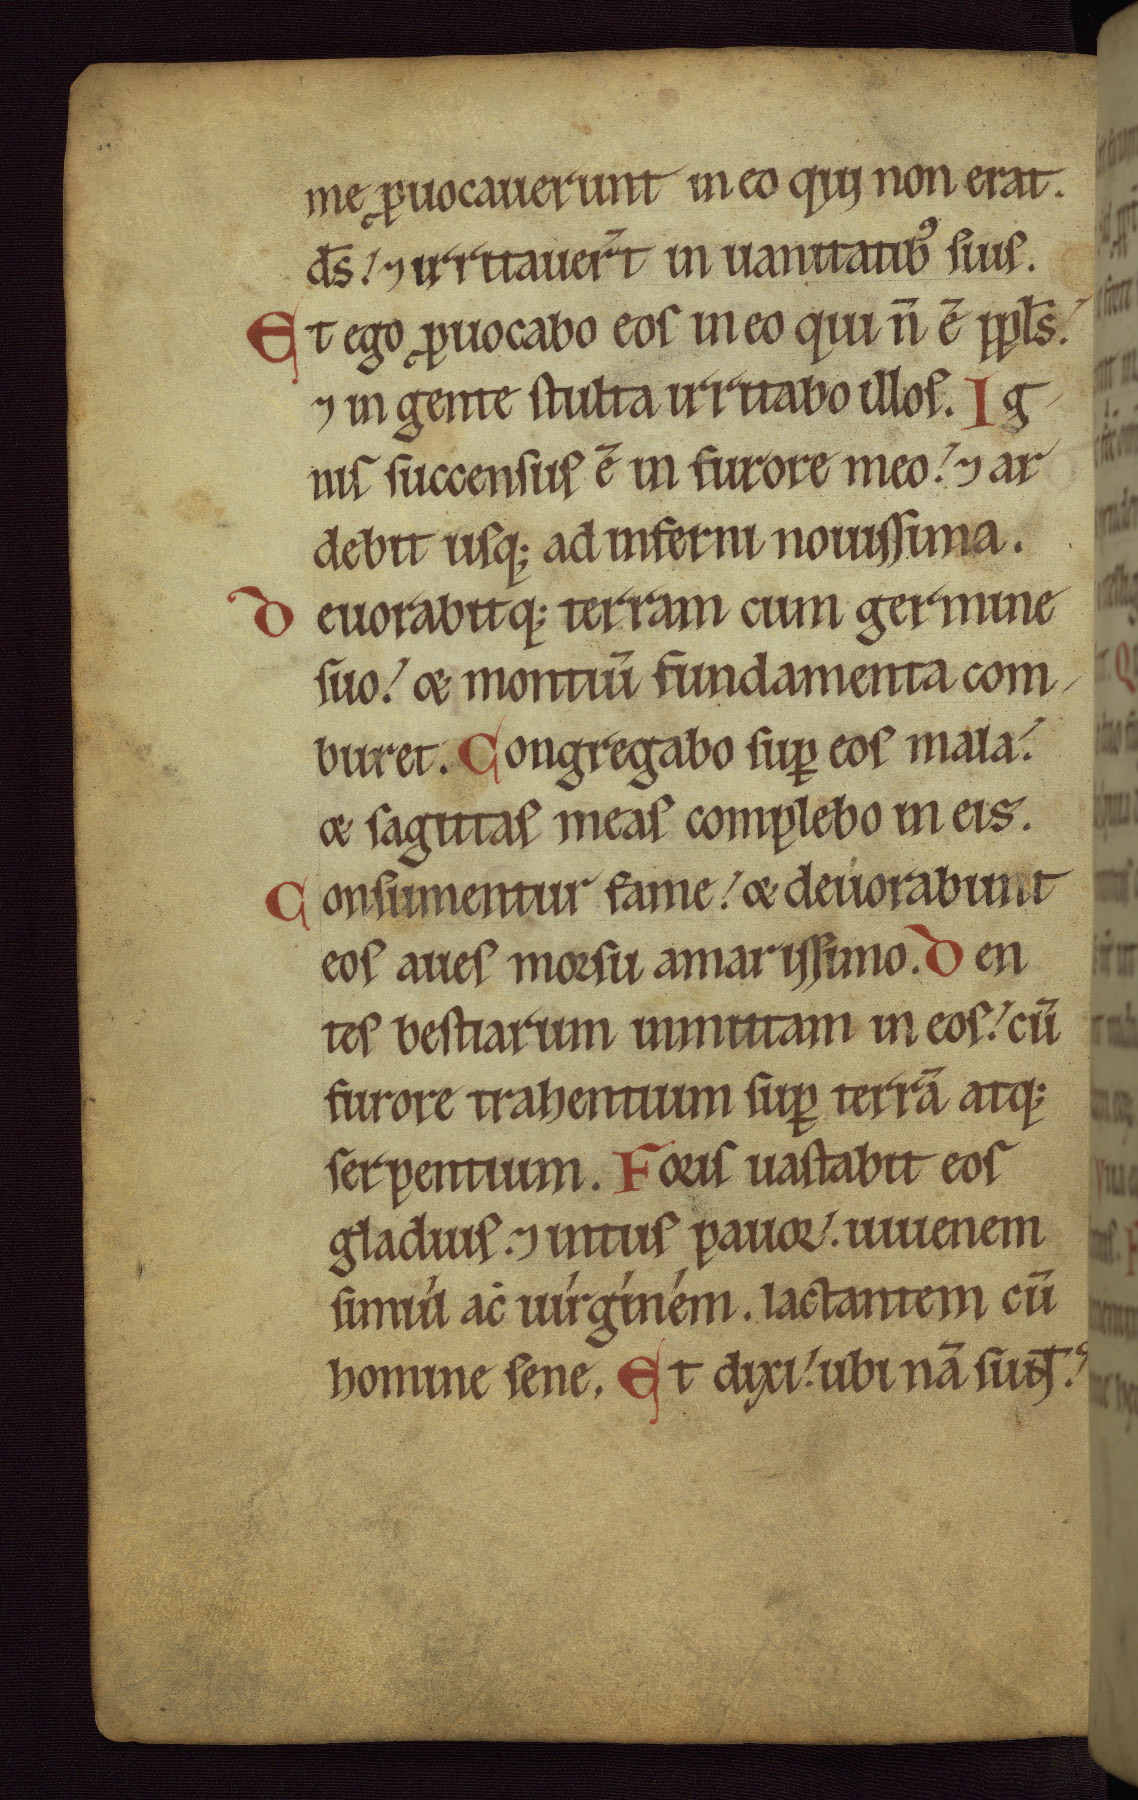 me ꝓuocauerunt in eo qui non erat.
ds̄! ⁊ irritauer̄t in uanitatibꝰ suis.
Et ego ꝓuocabo eos in eo qui n̄ ē ppl̄s!
⁊ in gente stulta irritabo illos. Ig
nis succensus ē in furore meo! ⁊ ar
debit usq; ad inferni nouissima.
Deuorabitq; terram cum germine
suo! & montiū fundamenta com-
buret. Congregabo suꝑ eos mala!
& sagittas meas complebo in eis.
Consumentur fame! & deuorabunt
eos aues morsu amarissimo. Den
tes bestiarum inmittam in eos! cū
furore trahentium suꝑ terrā atq;
serpentium. Foris uastabit eos
gladius. ⁊ intus pauor! iuuenem
simul ac uirginem. lactantem cū
homine sene. Et dixi! ubi nā sunt?